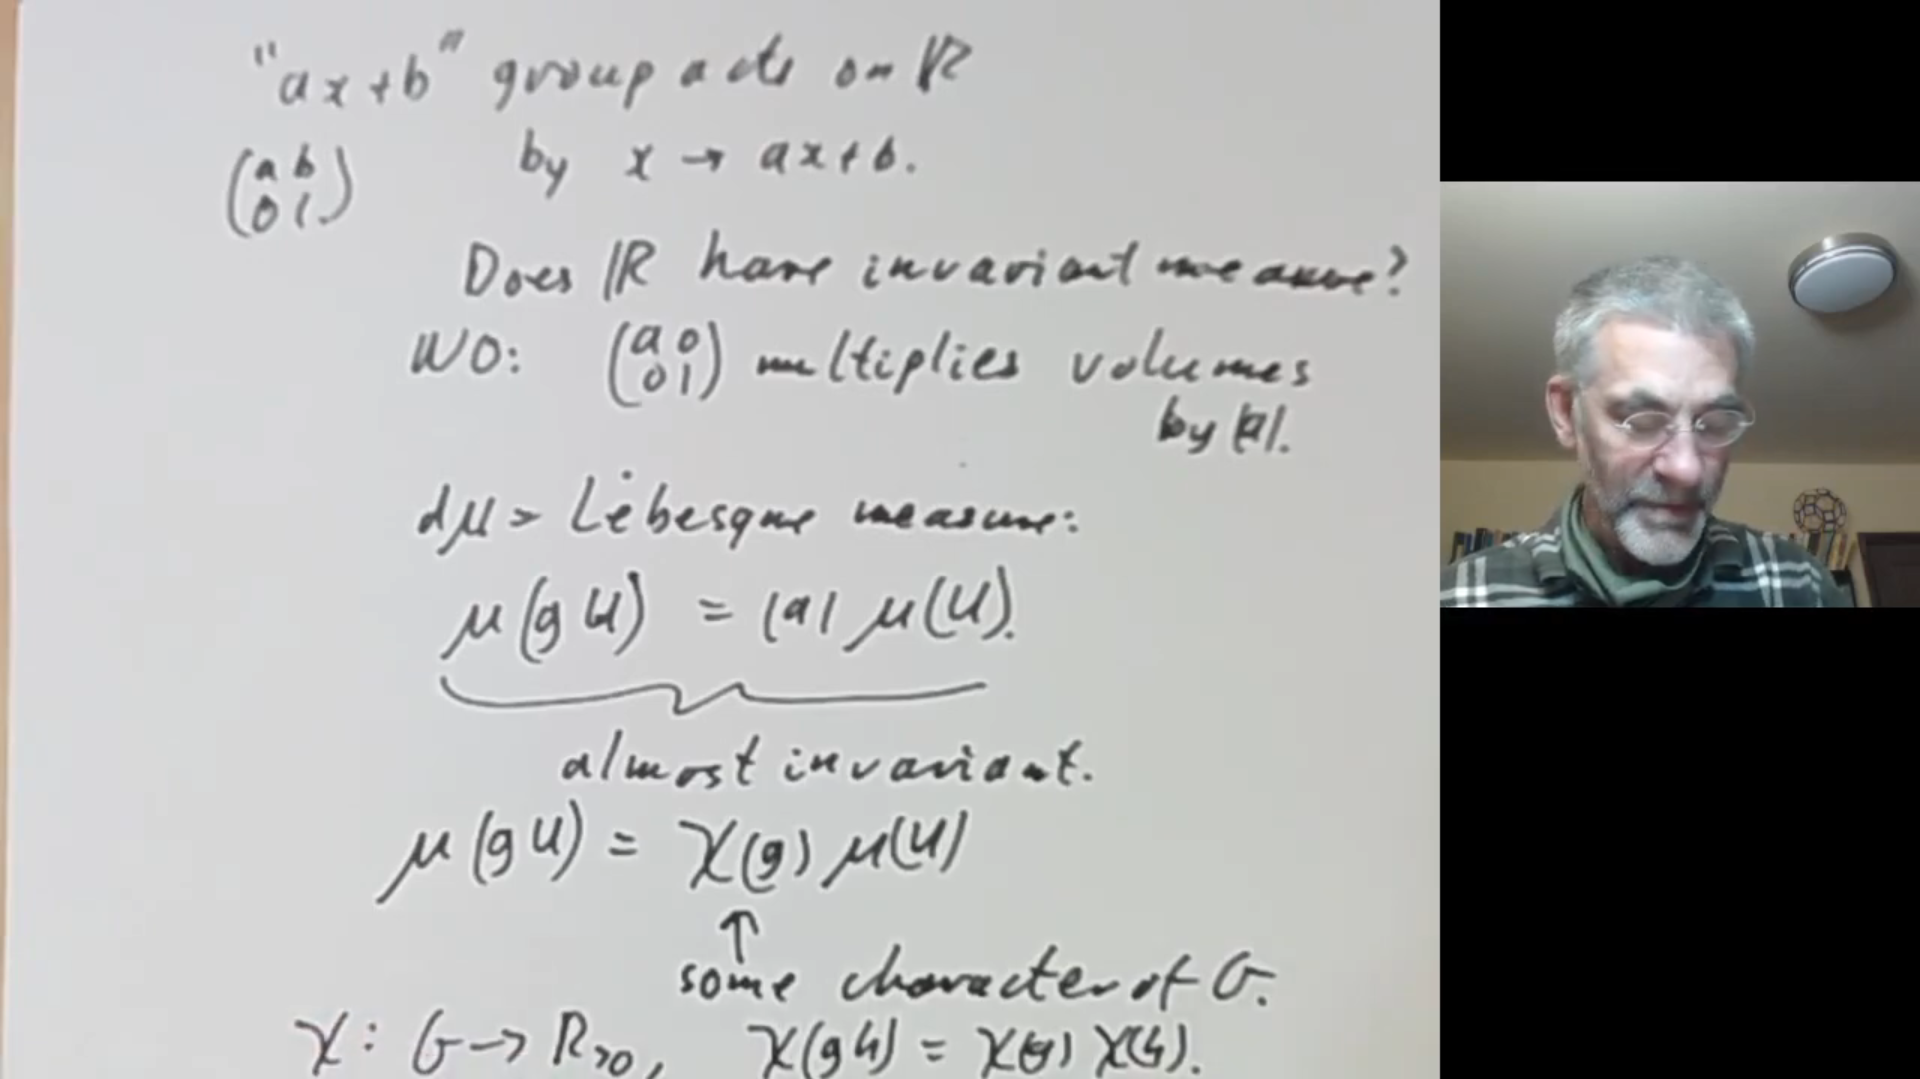 "ax+b" group acts on ℝ
(a b
0 1)
by x → ax+b.
Does ℝ have invariant measure?
NO: (a 0
0 1) multiplies volumes
by |a|.
dμ = Lebesgue measure:
μ(gU) = |a| μ(U).
almost invariant.
μ(gU) = χ(g) μ(U)
↑
some character of G.
χ: G → R>0, χ(gh) = χ(g) χ(h).